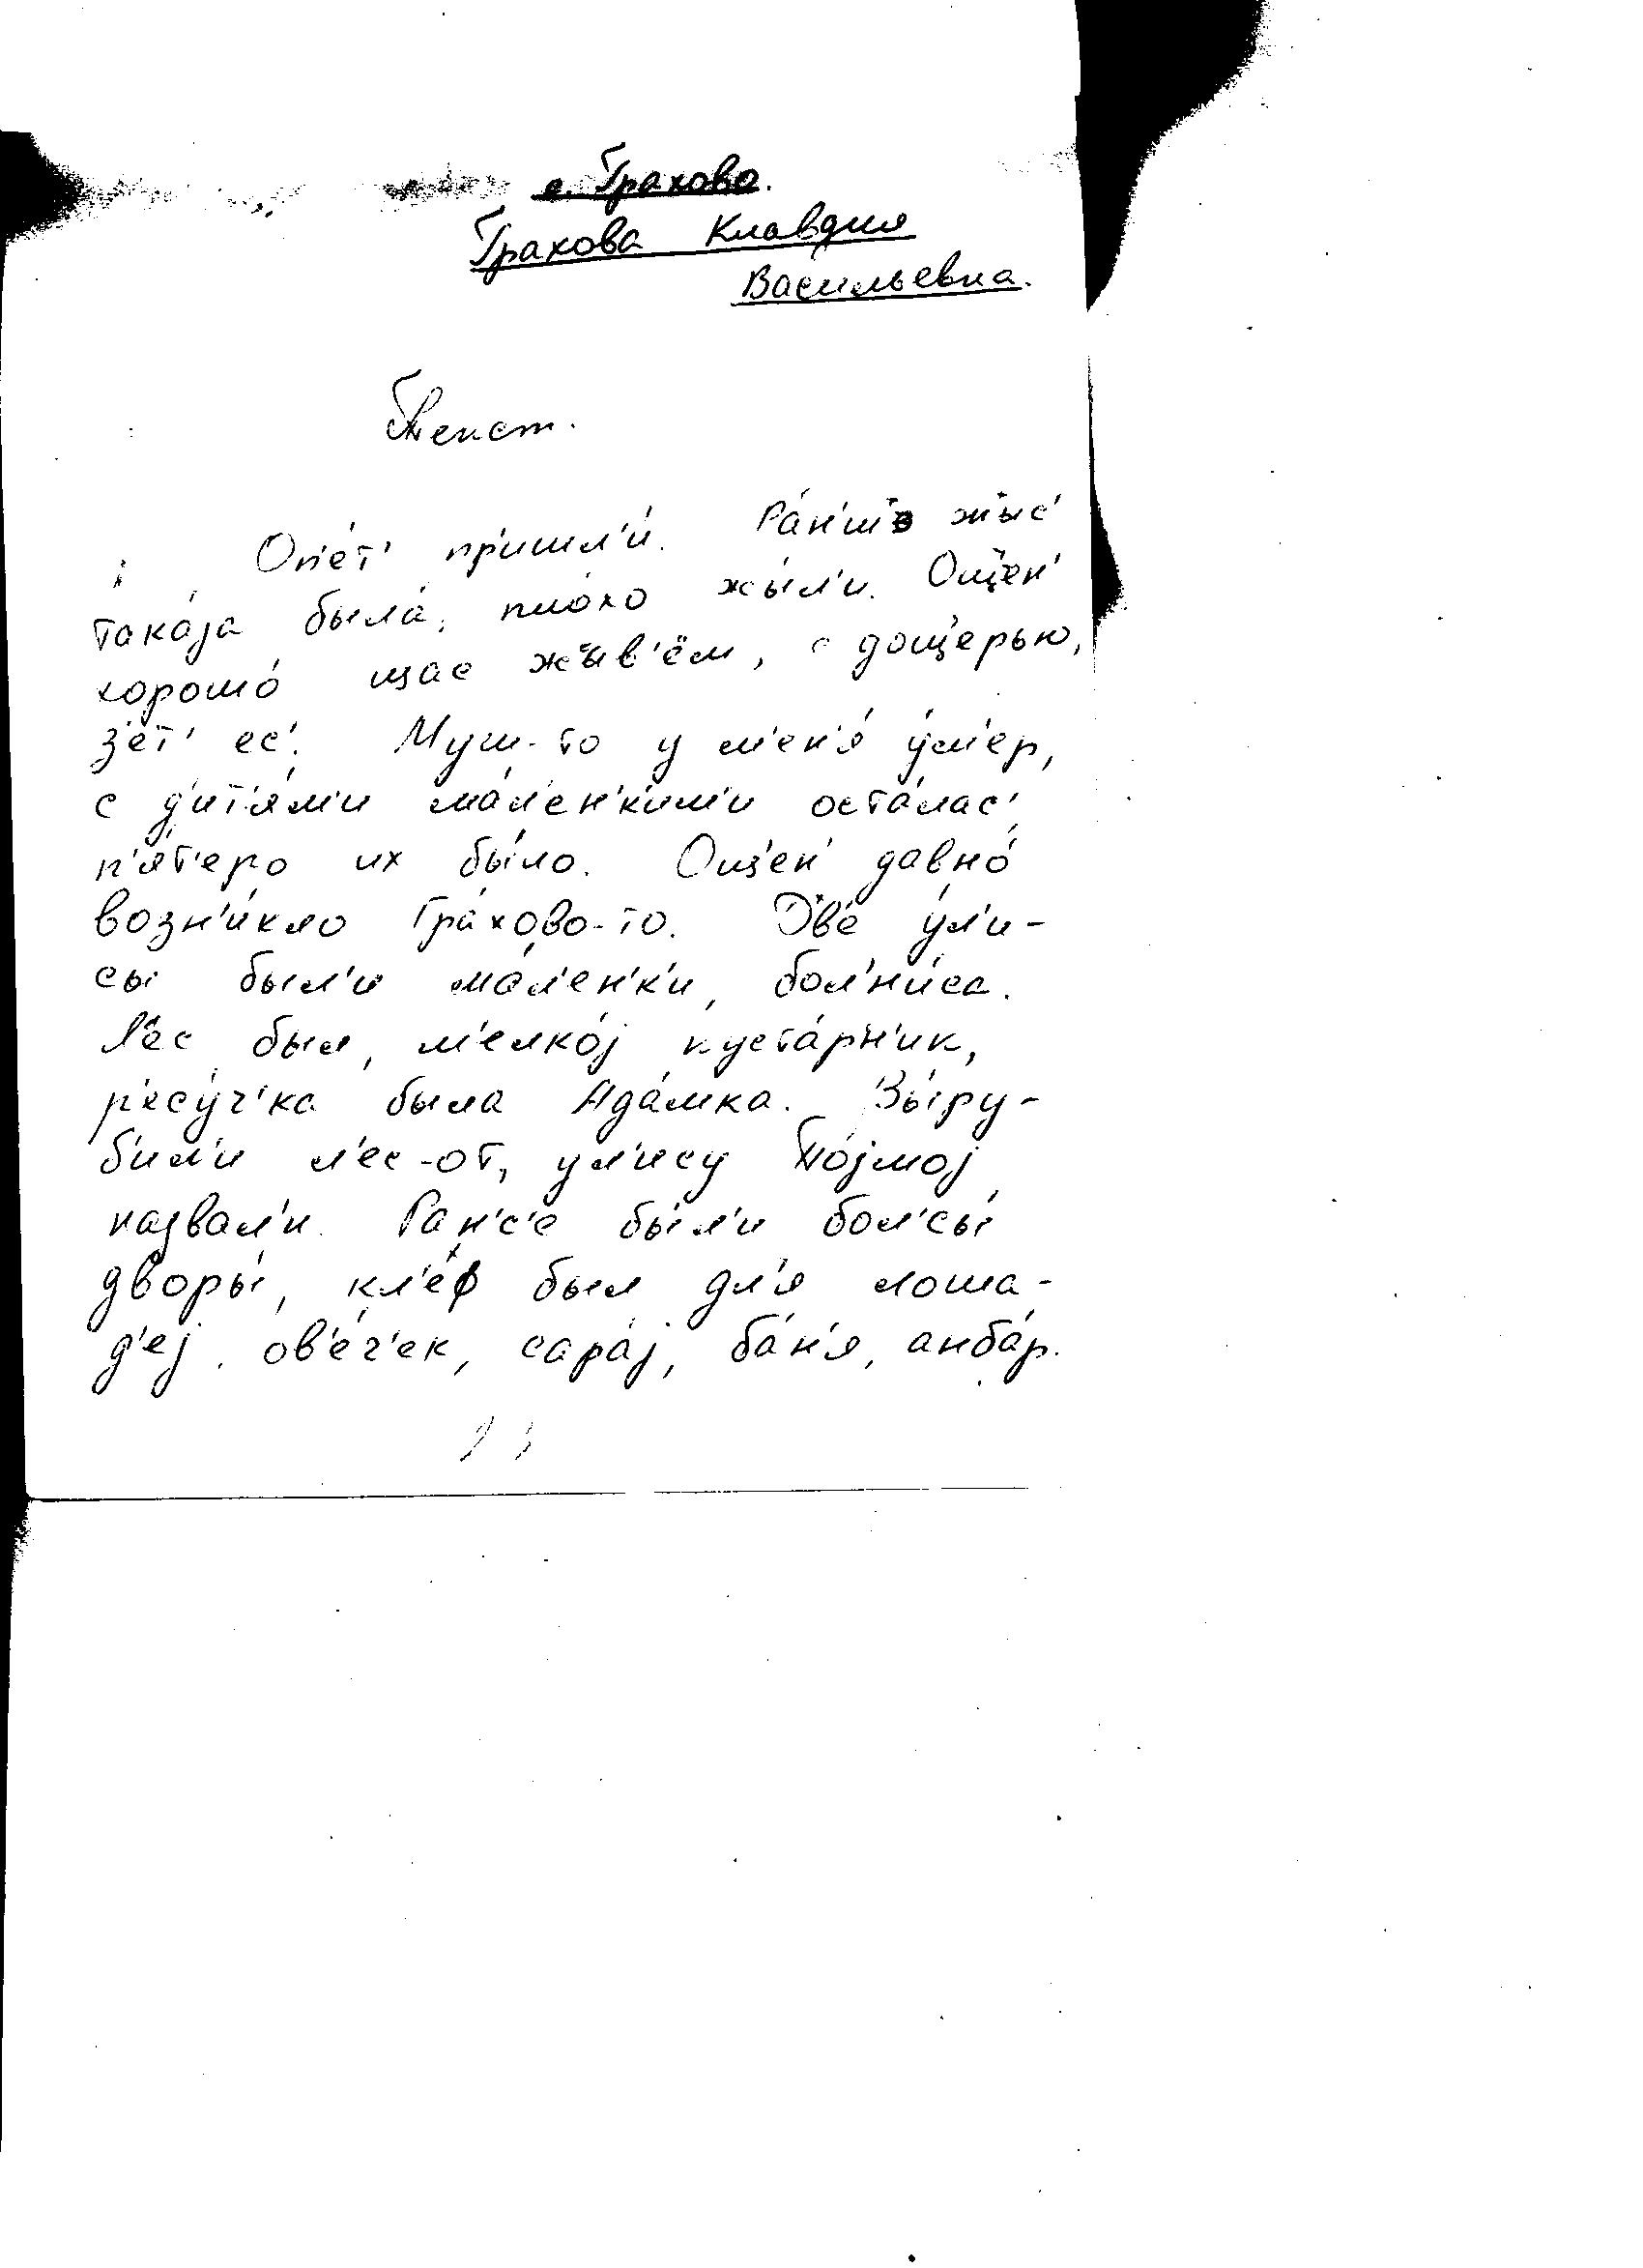 с. Грахово.
Грахова Клавдия
Васильевна.
Текст.
Оп'е́т' пр'ишл'и́. Ра́н'шэ жыс'
така́jа была́, пло́хо жы́л'и. Ощ'ен'
хорошо́ щас жыв'ём, с дощ'ерью,
з'ет' ес'. Муш-то у м'ен'я́ у́м'ер,
с д'ит'а́м'и ма́л'ен'к'им'и оста́лас',
п'а́т'еро их бы́ло. Ощ'ен' давно́
возн'и́кло Гра́хово-то. Дв'е у́л'и-
сы был'и ма́л'ен'к'и, бол'н'и́са.
Л'ес был, м'елко́j куста́рн'ик,
р'есу́ч'ка была Ада́мка. Вы́ру-
б'ил'и л'ес-от, ул'ису По́jмоj
назвал'и. Ран'с'е бы́л'и бол'сы́
дворы́, кл'еф был дл'я лоша-
д'еj, ов'е́ч'ек, сара́j, ба́н'я, анба́р.